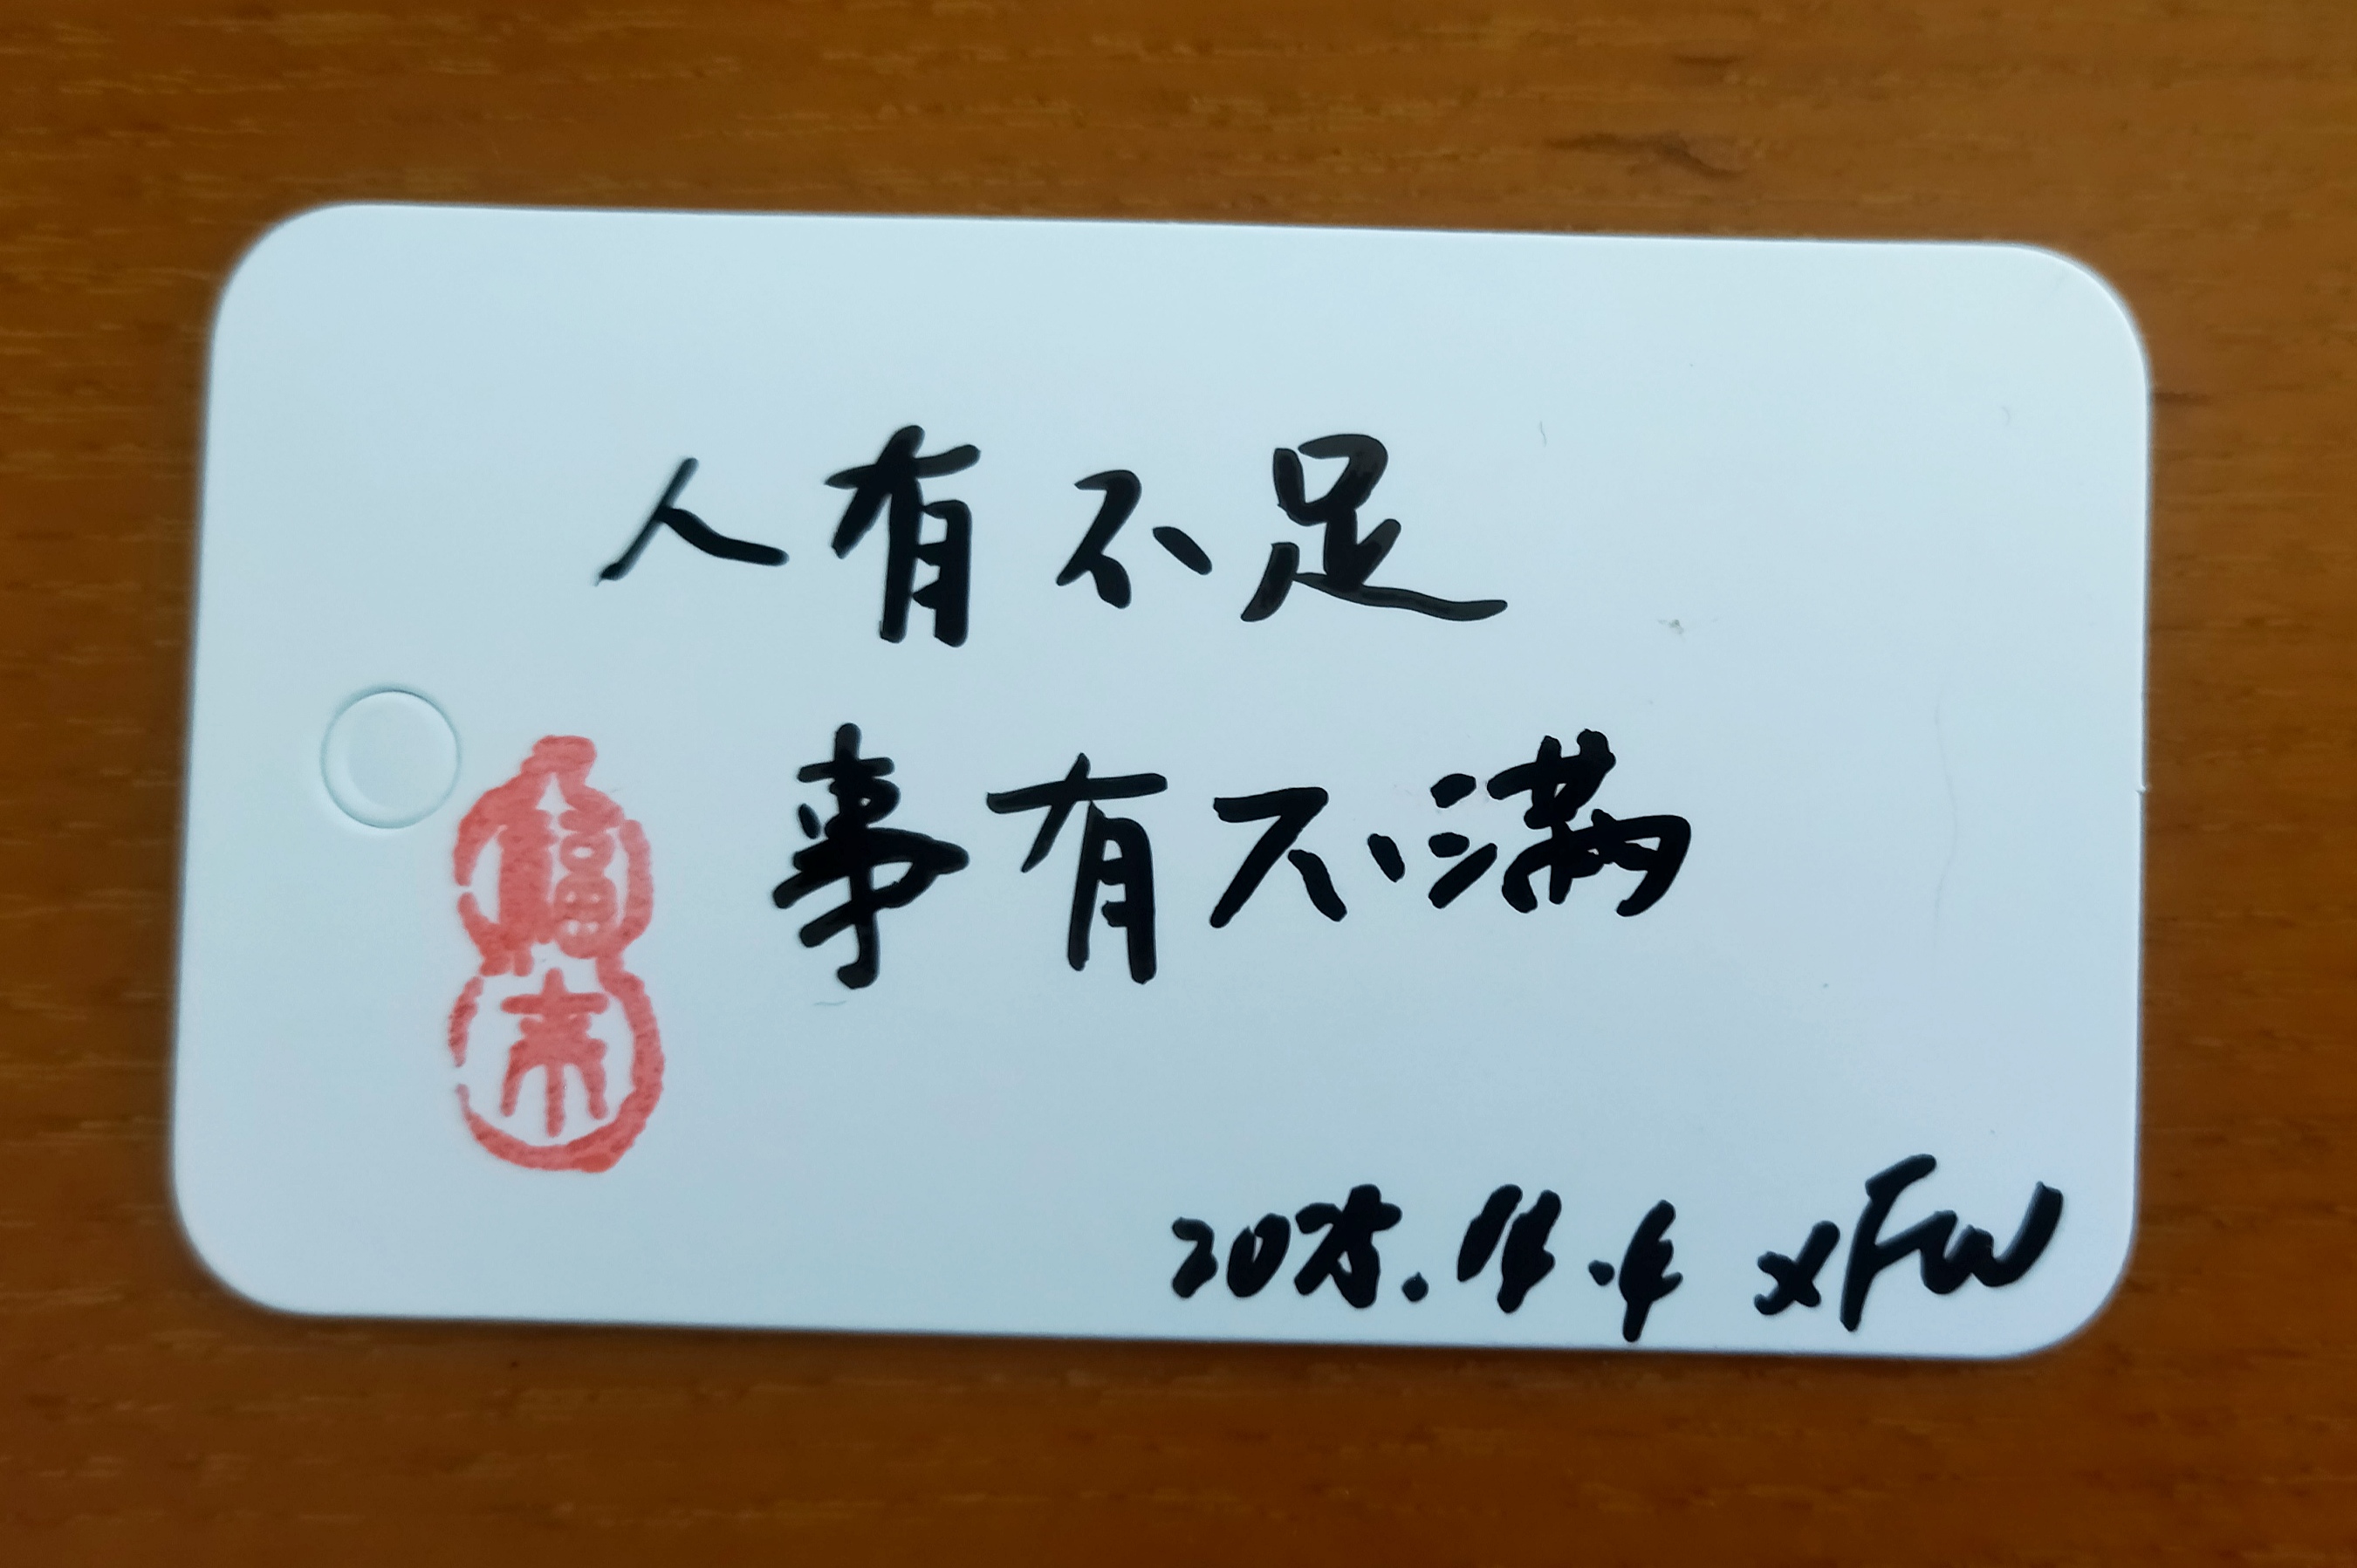 人有不足
事有不满
福来
2025.11.4 XFW